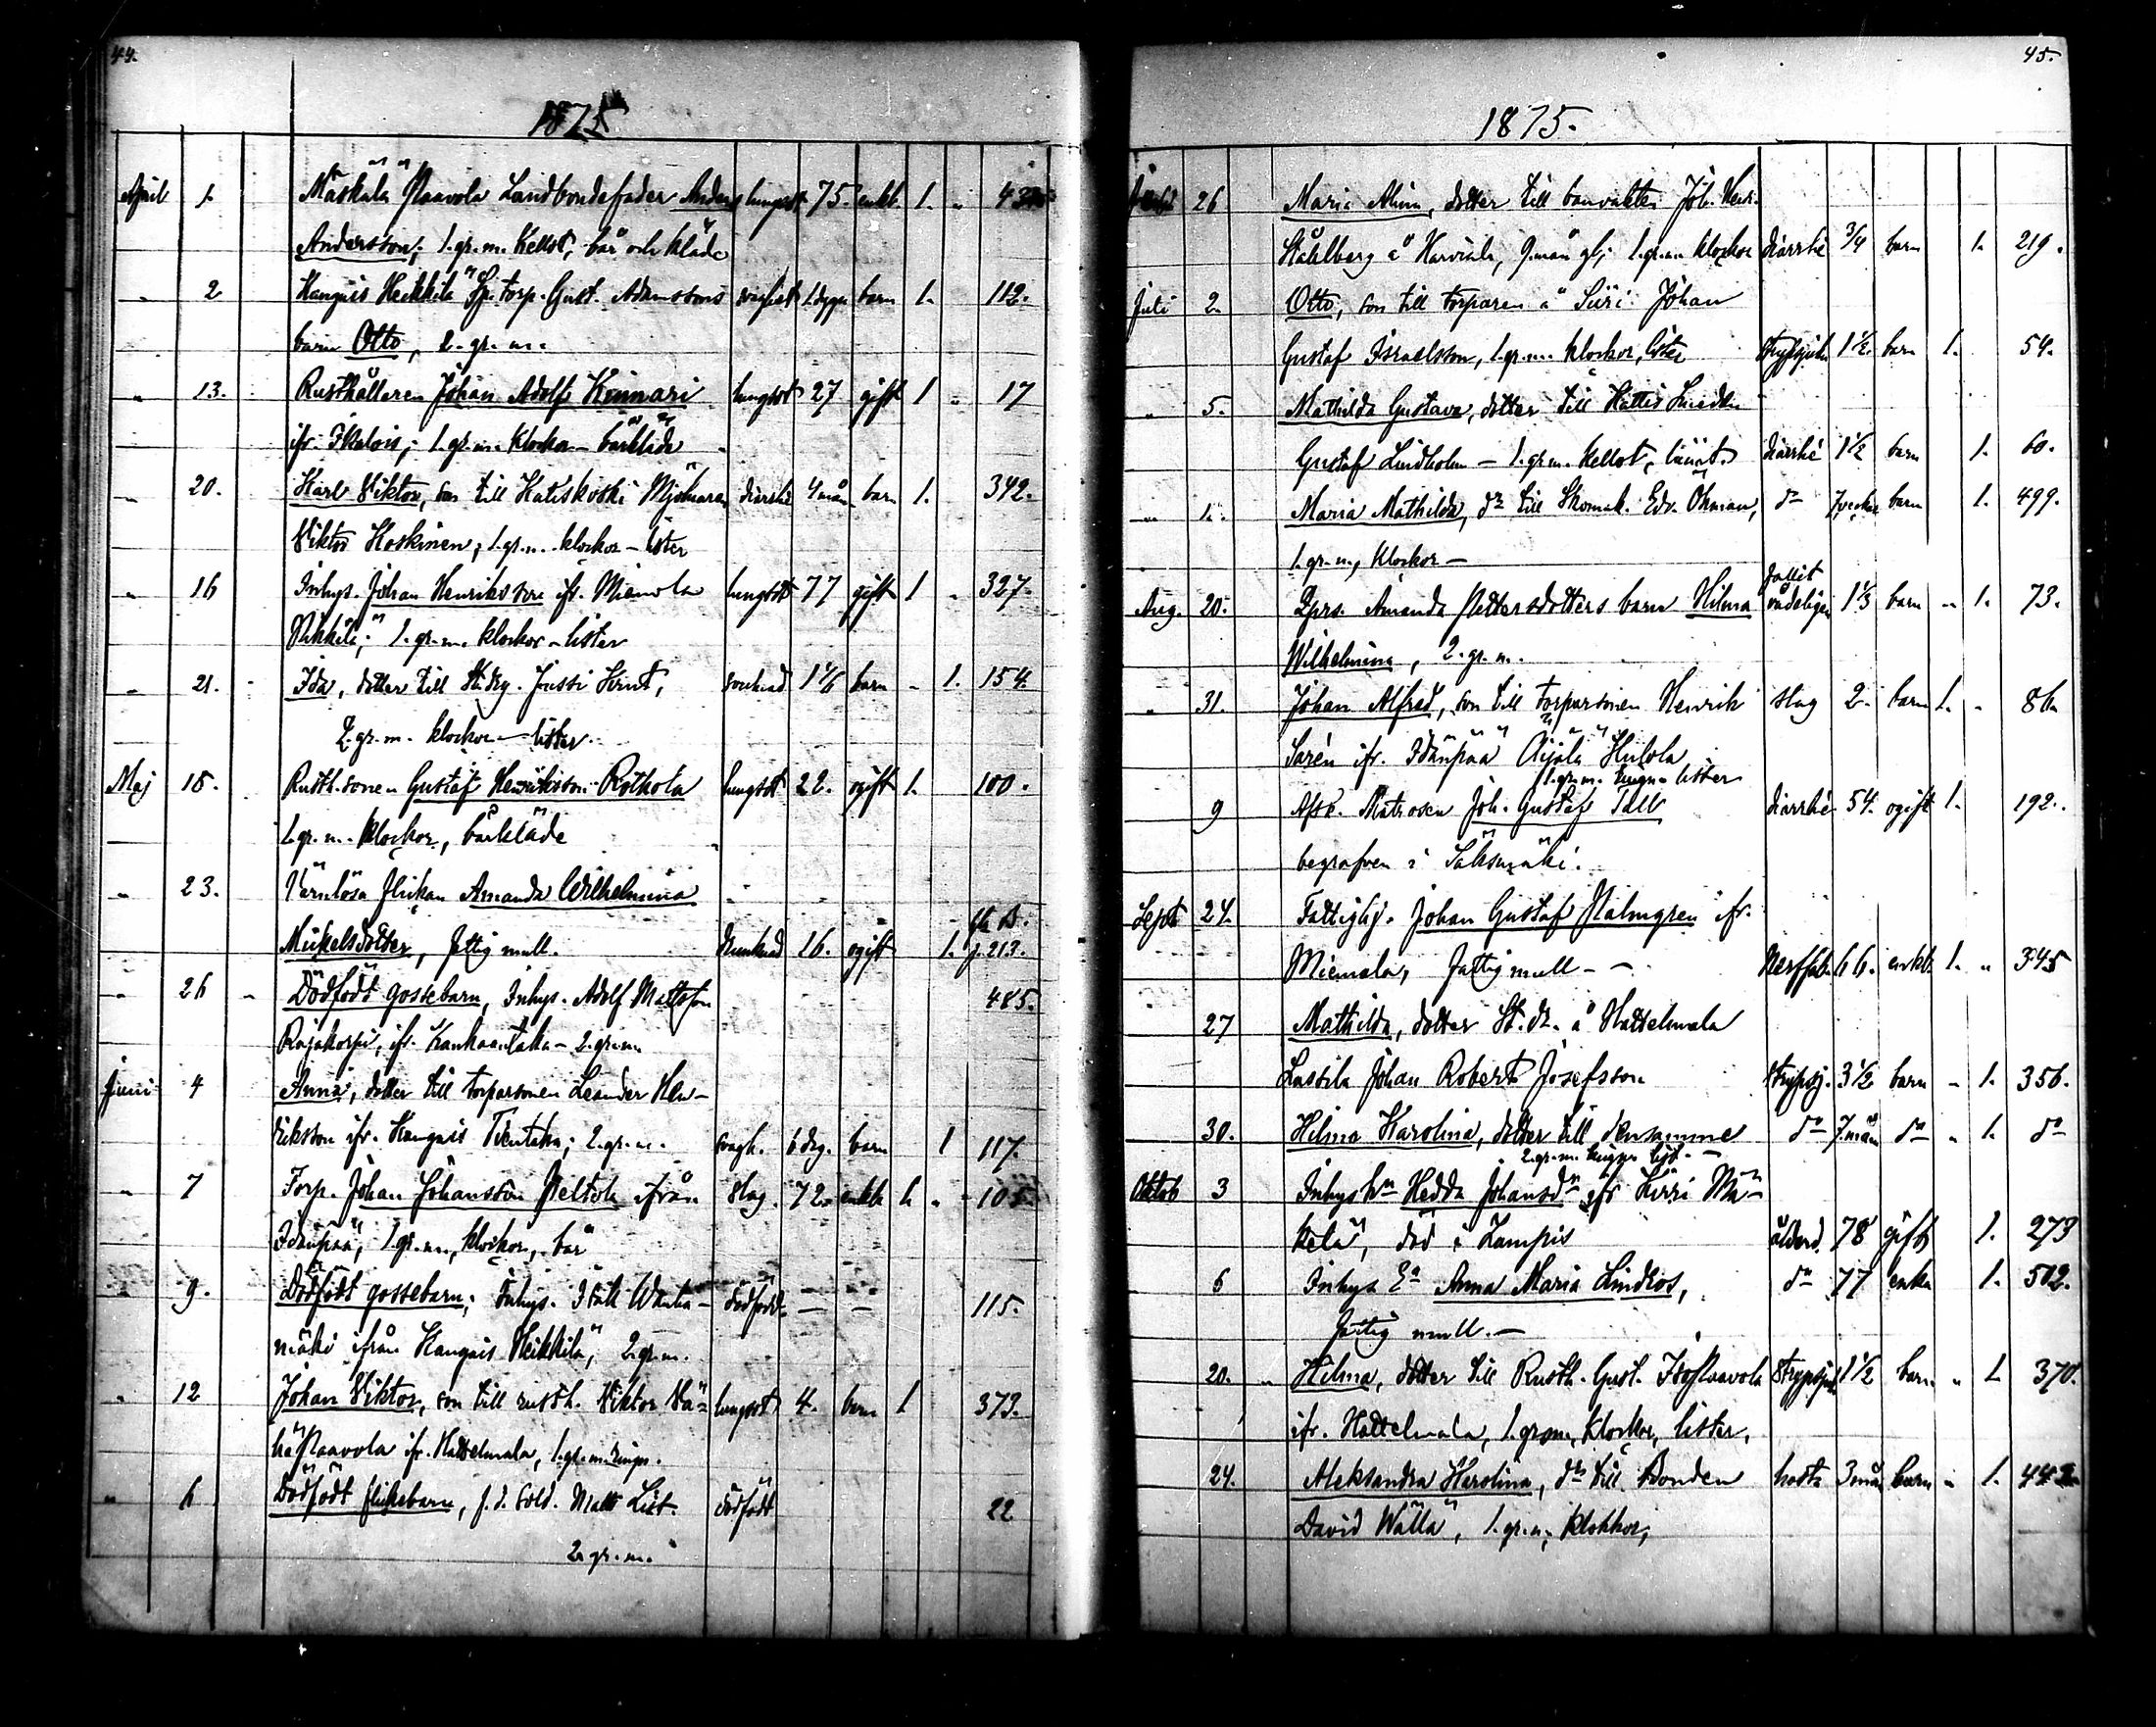 44.
1875
April 1. Mäskälä Paavola Landbondefader Anders lungsot 75. enkl. 1. "
Andersson; 1. gr. m. Kellot, bår och kläde
" 2 Hangais Heikkilä torp. Gust. Adamssons svaghet 1 dygn barn 1. 112.
barn Otto, 2. gr. m.
" 13. Rusthållaren Johan Adolf Kinnari lungsot 27 gift 1 " 17
ifr. Ikalois; 1. gr. m. klockor - bårkläde
" 20. Karl Viktor, son till Katiskoski Mjölnaren diarrhé 4 mån barn 1. 342.
Viktor Koskinen; 1. gr. m. klockor - lister
" 16 Inhys. Johan Henriksson ifr. Miemola lungsot 77 gift 1 " 327.
Pikkilä; 1. gr. m. klockor - lister
" 21. Ida, dotter till Jussi 1 1/6 barn " 1. 154.
2. gr. m. klockor - lister.
Maj 18. Rusth. sonen Gustaf Henriksson Rothola lungsot 22. ogift 1. 100.
1. gr. m. klockor, bårkläde
" 23. Värnlösa flickan Amanda Wilhelmina
Mickelsdotter, fattig mull. drunknad 16. ogift 1. p. 213.
" 26 Dödfödt gossebarn, Inhys. Adolf Mattsson 485.
Rajakorpi, ifr. Kankaantaka - 2. gr. m.
Juni 4 Anna, dotter till torparsonen Leander Hen-
riksson ifr. Hangais 2. gr. m. svagh. 6 dag. barn 1 117.
" 7 Torp. Johan Johansson Peltola ifrån slag. 72. enkl. 1. " 105
Idänpää, 1. gr. m., klockor, bår
" 9. Dödfödt gossebarn; Inhys. Wanta- dödfödt — — 115.
mäki ifrån Hangais Heikkilä, 2. gr. m.
" 12 Johan Viktor, son till rusth. Viktor Vä- lungsot 4. barn 1 373.
häPaavola ifr. Hattelmala, 1. gr. m.
" 6 Dödfödt flickebarn, f. d. Sold. Matts List. dödfödt 22
2. gr. m.
45.
1875.
26 Maria Alina, dotter till banvakten Joh. Henr.
Ståhlberg å Harviala, 9. mån gl; 1. gr. m. klockor diarrhé 3/4 barn 1. 219.
Juli 2. Otto, son till torparen å Siiri Johan
Gustaf Israelsson, 1. gr. m. klockor, lister strypsjuka 1 1/2. barn 1. 54.
" 5. Mathilda Gustava, dotter till Hattis Smeden
Gustaf Lindholm - 1. gr. m. Kellot, diarrhé 1 1/2 barn 1. 60.
" 1. Maria Mathilda, dr till Skomak. Edv. Öhman, do 7 veckor barn 1. 499.
1. gr. m., klockor -
Aug. 20. Amanda Pettersdotters barn Hilma fallit vådeligen 1 1/3 barn " 1. 73.
Wilhelmina, 2. gr. m.
" 31. Johan Alfred, son till torparsonen Henrik slag 2. barn 1. " 86
Sarén ifr. Idänpää Äijälä Hulola
1. gr. m. lister
9 Afsk. Matrosen Joh. Gustaf Tall diarrhé 54. ogift 1. 192.
begrafven i Sääksmäki.
Sept 24. Fattighj. Johan Gustaf Palmgren ifr.
Miemala, fattig mull - - Nerffeb. 66. enkl. 1. " 345
27 Mathilda, dotter St. dr. å Hattelmala
Lassila Johan Robert Josefsson strypsj. 3 1/2 barn " 1. 356.
30. Hilma Karolina, dotter till densamme do 7. mån do " 1. do
2. gr. m.
Oktob 3 Inhys hn Hedda Johansdr ifr Siiri Mä-
kelä, död i Lampis ålderd. 78 gift 1. 273
6 Inhys En Anna Maria Lindros, do 77 enka 1. 512.
fattig mull. -
20. " Hilma, dotter till Rusth. Gust. IsoPaavola strypsjuk 1 1/2 barn " 1. 370.
ifr. Hattelmala, 1. gr. m., klockor, lister.
24. Aleksandra Karolina, dr till Bonden hosta 3 mån barn " 1.
David Wälla, 1. gr. m., klockor;